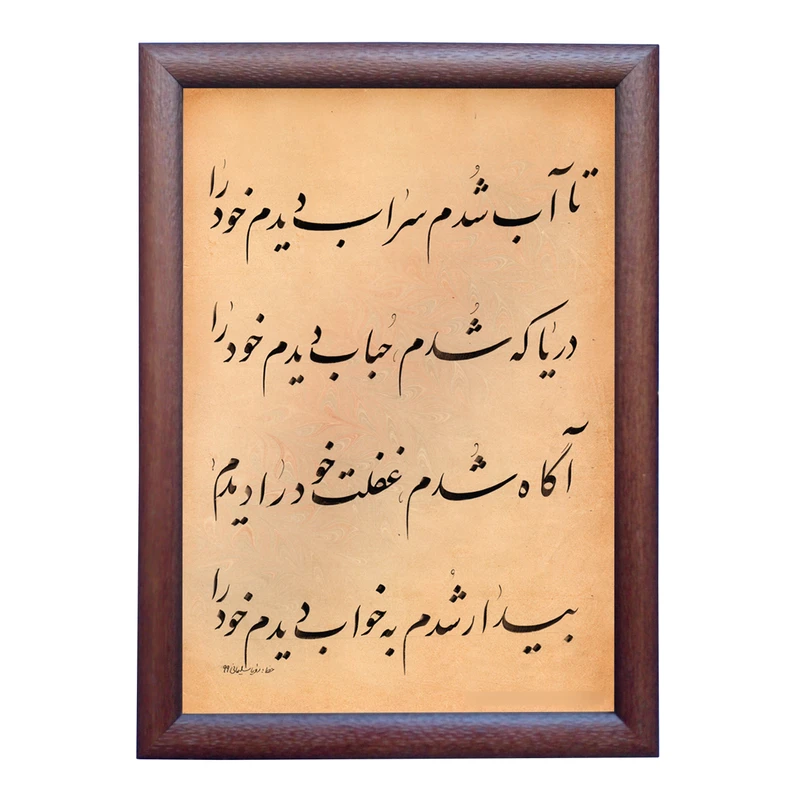 تا آب شُدم سراب دیدم خود را
دریا که شُدم حُباب دیدم خود را
آگاه شُدم غفلت خود را دیدم
بیدار شُدم به خواب دیدم خود را
خط: رؤیا سلیمانی ۹۹